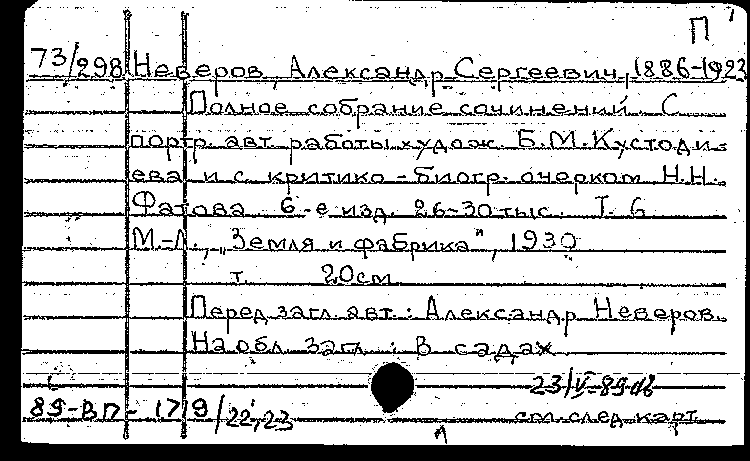 П
73/298 Неверов, Александр Сергеевич, 1886-1923
Полное собрание сочинений. С
портр. авт. работы худож. Б.М.Кустоди-
ева и с критико-биогр. очерком Н.Н.
Фатова. 6-е изд. 26-30 тыс. Т. 6
М.-Л., „Земля и фабрика", 1930
т. 20см
Перед загл. авт.: Александр Неверов.
На обл. загл.: В садах
23/V-89
89-ВП-1719/22,23 см. след. карт.